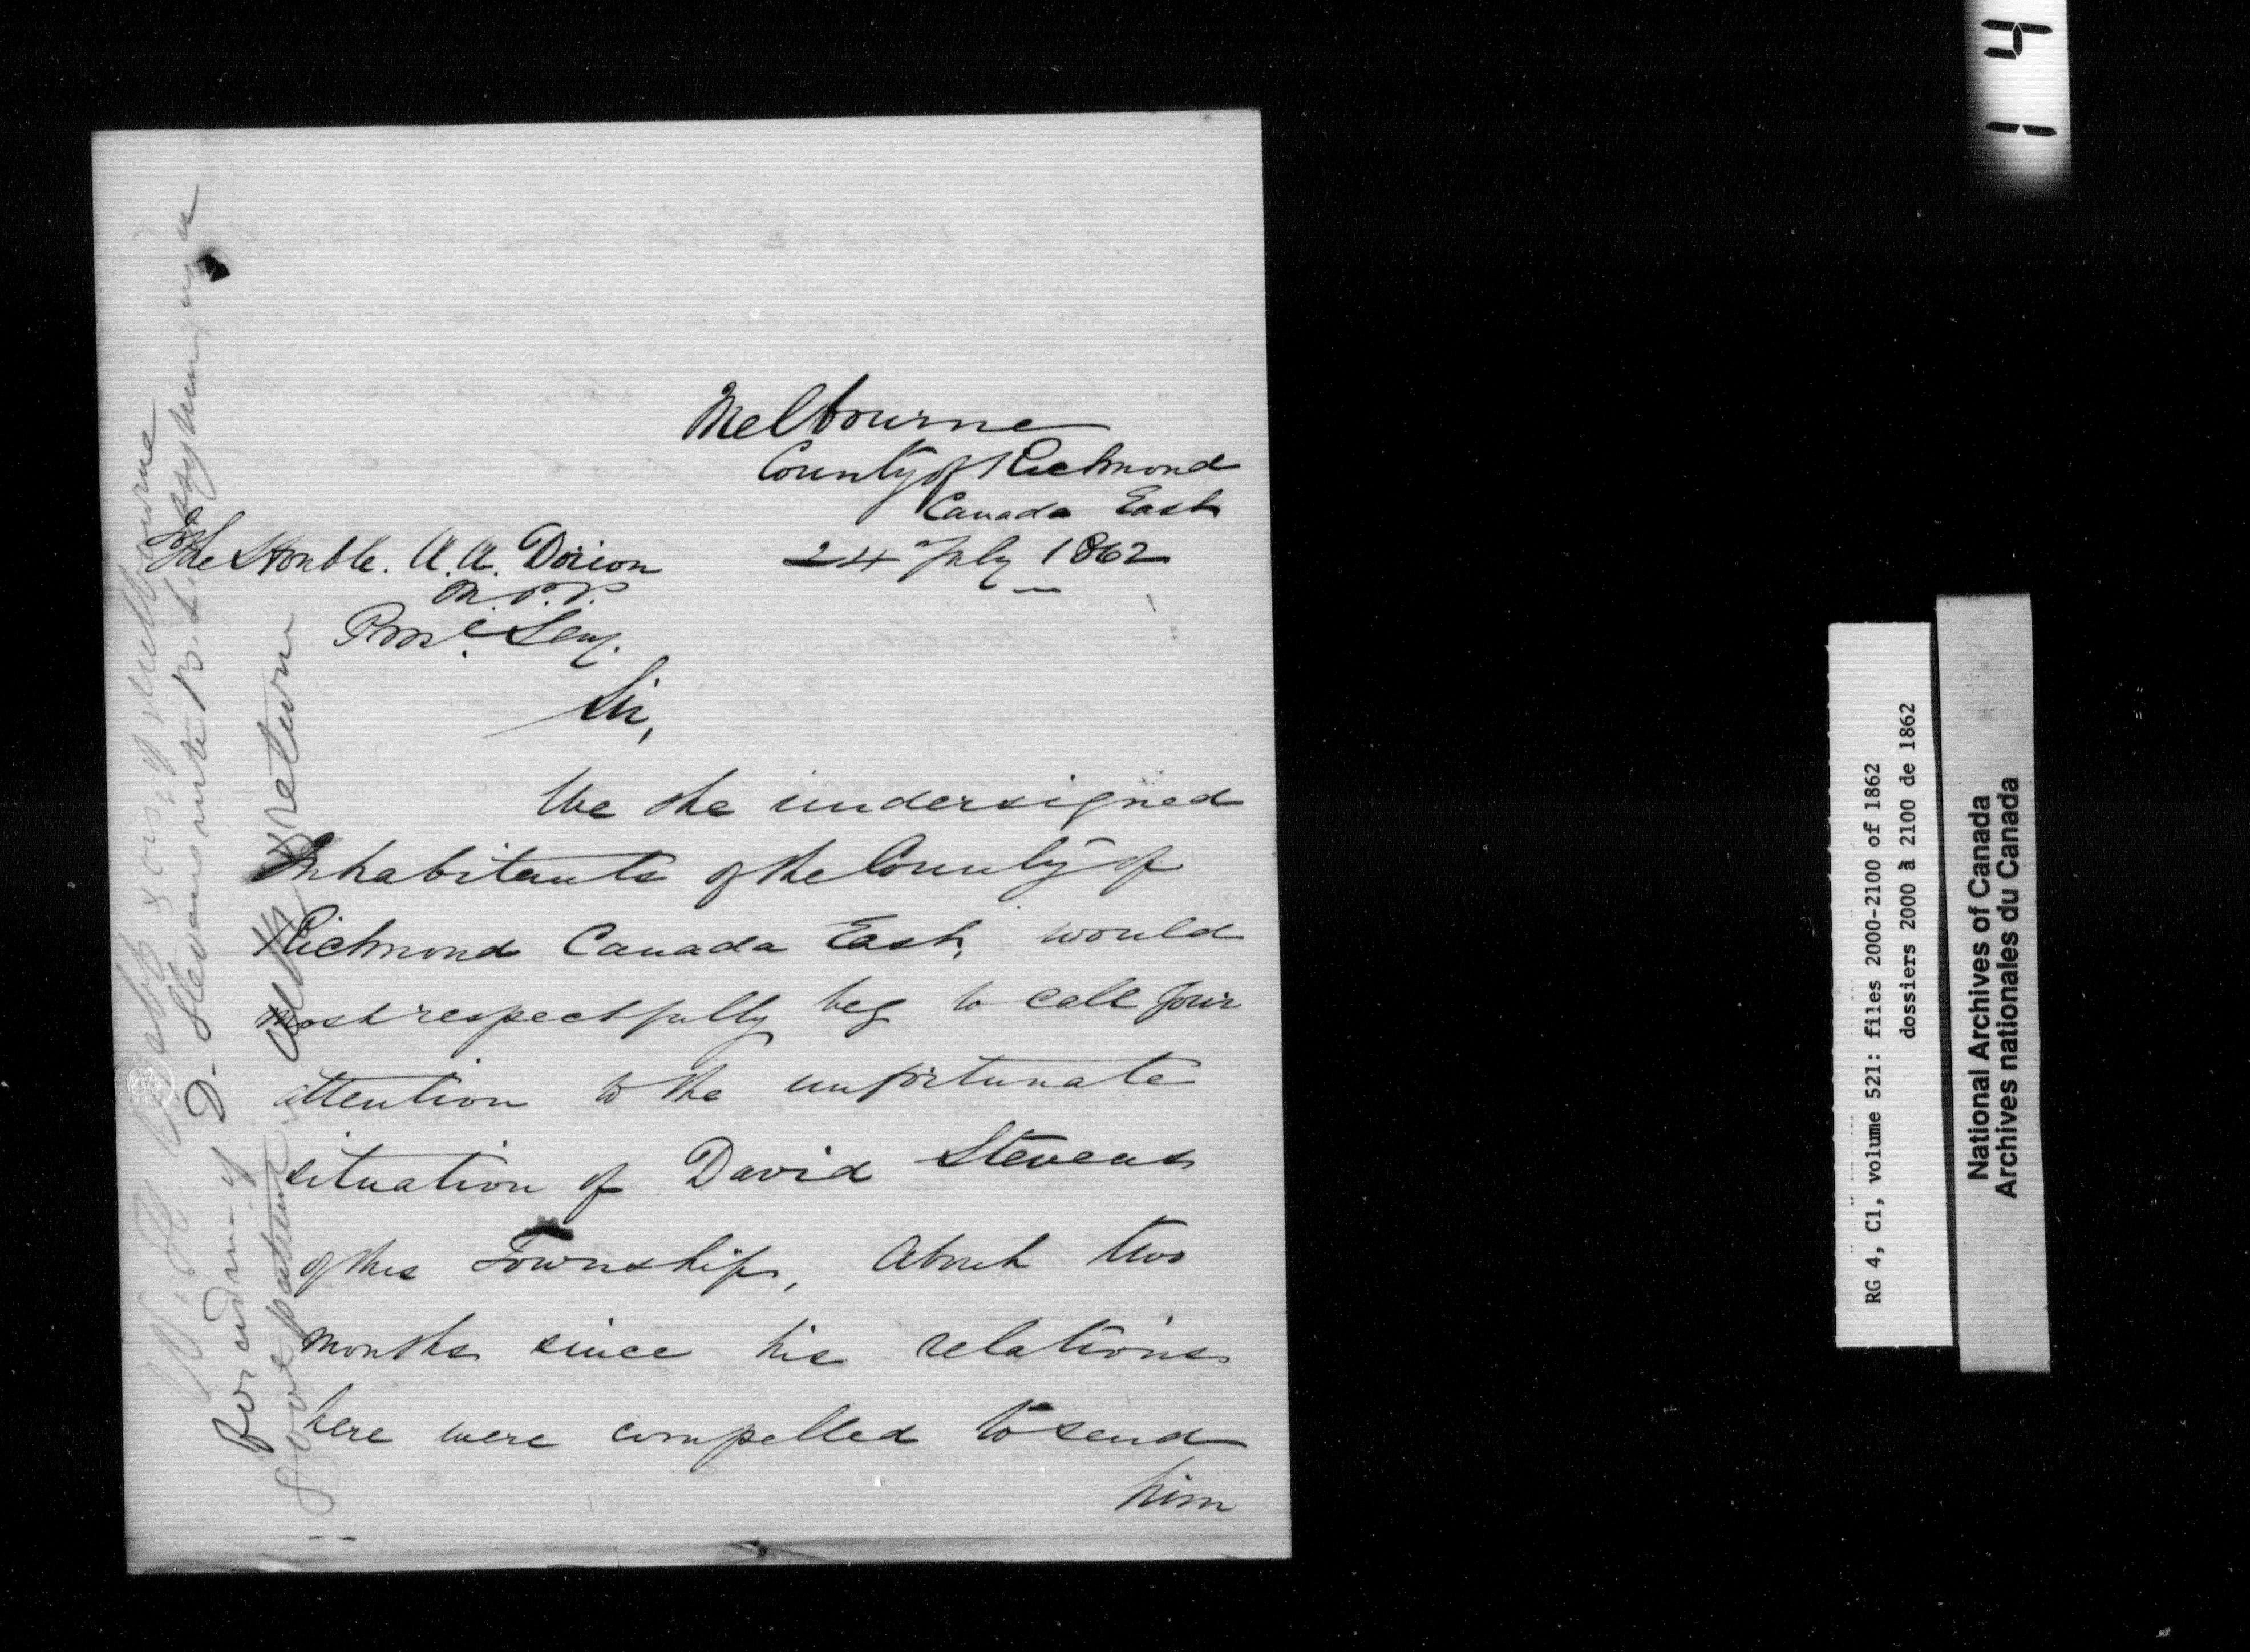 Melbourne
County of Richmond
Canada East
24 July 1862
The Honble. A. A. Dorion
M.P.P.
Sir,
We the undersigned
Inhabitants of the County of
Richmond Canada East, would
most respectfully beg to call your
attention to the unfortunate
situation of David Stevens
of this Township, About two
months since his relations
here were compelled to send
him
W. H. Webb Esq. Melbourne
For admn of D. Stevens into B. L. Asylum
return
14
RG 4, C1, volume 521: files 2000-2100 of 1862
dossiers 2000 à 2100 de 1862
National Archives of Canada
Archives nationales du Canada